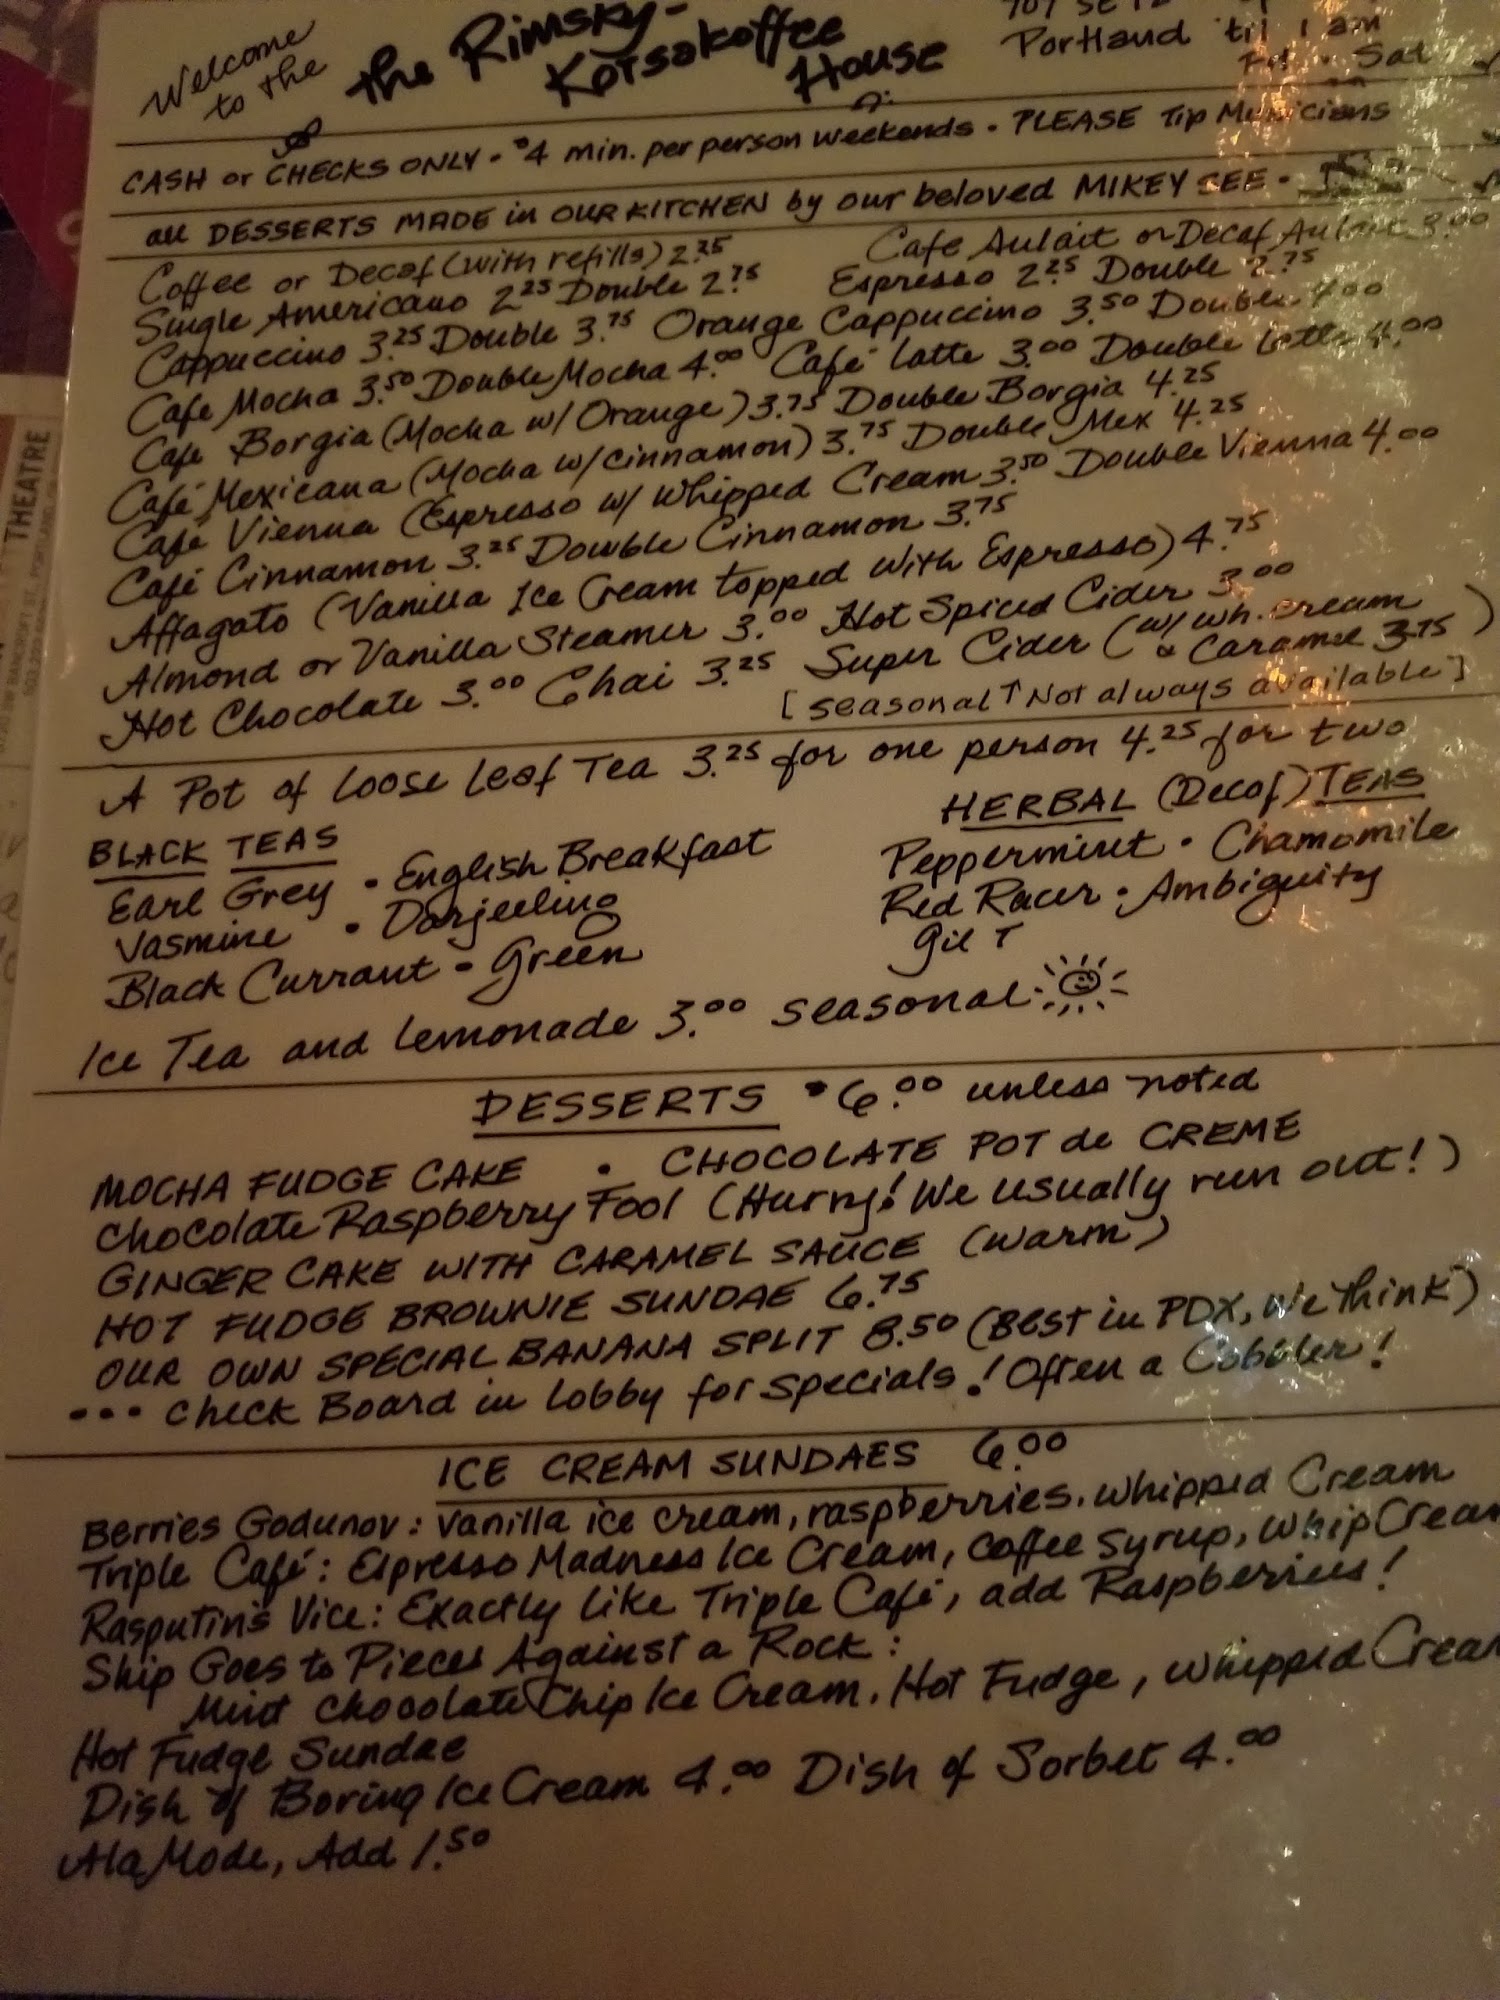 Welcome to the
the Rimsky-
Korsakoffee
House
707 SE 12
Portland 'til 1 am
Fri - Sat
CASH or CHECKS ONLY - $4 min. per person weekends - PLEASE Tip Musicians
all DESSERTS MADE in OUR KITCHEN by our beloved MIKEY SEE -
Coffee or Decaf (with refills) 2.25 Cafe Aulait or Decaf Aulait 3.00
Single Americano 2.25 Double 2.75 Espresso 2.25 Double 2.75
Cappuccino 3.25 Double 3.75 Orange Cappuccino 3.50 Double 4.00
Cafe Mocha 3.50 Double Mocha 4.00 Café Latte 3.00 Double Latte 4.00
Café Borgia (Mocha w/ Orange) 3.75 Double Borgia 4.25
Café Mexicana (Mocha w/ cinnamon) 3.75 Double Mex 4.25
Café Vienna (Espresso w/ Whipped Cream 3.50 Double Vienna 4.00
Café Cinnamon 3.25 Double Cinnamon 3.75
Affagato (Vanilla Ice Cream topped with Espresso) 4.75
Almond or Vanilla Steamer 3.00 Hot Spiced Cider 3.00
Hot Chocolate 3.00 Chai 3.25 Super Cider (w/ wh. cream & Caramel 3.75)
[seasonal ↑ Not always available]
A Pot of Loose Leaf Tea 3.25 for one person 4.25 for two
BLACK TEAS
HERBAL (Decaf) TEAS
Earl Grey • English Breakfast
Peppermint • Chamomile
Jasmine • Darjeeling
Red Racer • Ambiguity
Black Currant - Green
Gil T
Ice Tea and Lemonade 3.00 seasonal
DESSERTS $6.00 unless noted
MOCHA FUDGE CAKE • CHOCOLATE POT de CREME
Chocolate Raspberry Fool (Hurry! We usually run out!)
GINGER CAKE WITH CARAMEL SAUCE (warm)
HOT FUDGE BROWNIE SUNDAE 6.75
OUR OWN SPECIAL BANANA SPLIT 8.50 (Best in PDX, We Think)
••• Check Board in Lobby for Specials! Often a Cobbler!
ICE CREAM SUNDAES 6.00
Berries Godunov: Vanilla ice cream, raspberries, whipped Cream
Triple Café: Espresso Madness Ice Cream, coffee syrup, Whip Cream
Rasputin's Vice: Exactly like Triple Café, add Raspberries!
Ship Goes to Pieces Against a Rock:
Mint Chocolate Chip Ice Cream, Hot Fudge, Whipped Cream
Hot Fudge Sundae
Dish of Boring Ice Cream 4.00 Dish of Sorbet 4.00
Ala Mode, Add 1.50
THEATRE